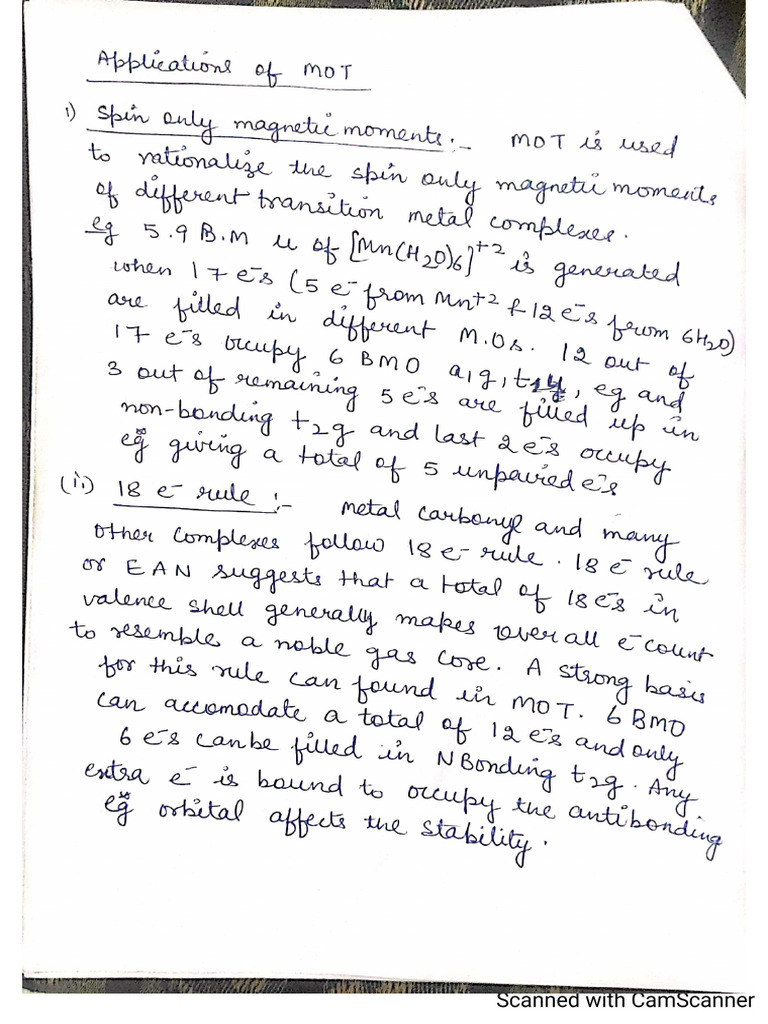 Applications of MOT
i) Spin only magnetic moments:- MOT is used
to rationalize the spin only magnetic moments
of different transition metal complexes.
eg 5.9 B.M u of [Mn(H2O)6]+2 is generated
when 17 e-s (5 e- from Mn+2 & 12 e-s from 6H2O)
are filled in different M.Os. 12 out of
17 e-s occupy 6 BMO a1g, t1u, eg and
3 out of remaining 5 e-s are filled up in
non-bonding t2g and last 2 e-s occupy
eg* giving a total of 5 unpaired e-s
(ii) 18 e- rule :- Metal carbonyl and many
other complexes follow 18 e- rule. 18 e- rule
or EAN suggests that a total of 18 e-s in
valence shell generally makes over all e- count
to resemble a noble gas core. A strong basis
for this rule can found in MOT. 6 BMO
can accomodate a total of 12 e-s and only
6 e-s can be filled in NBonding t2g. Any
extra e- is bound to occupy the antibonding
eg* orbital affects the stability.
Scanned with CamScanner